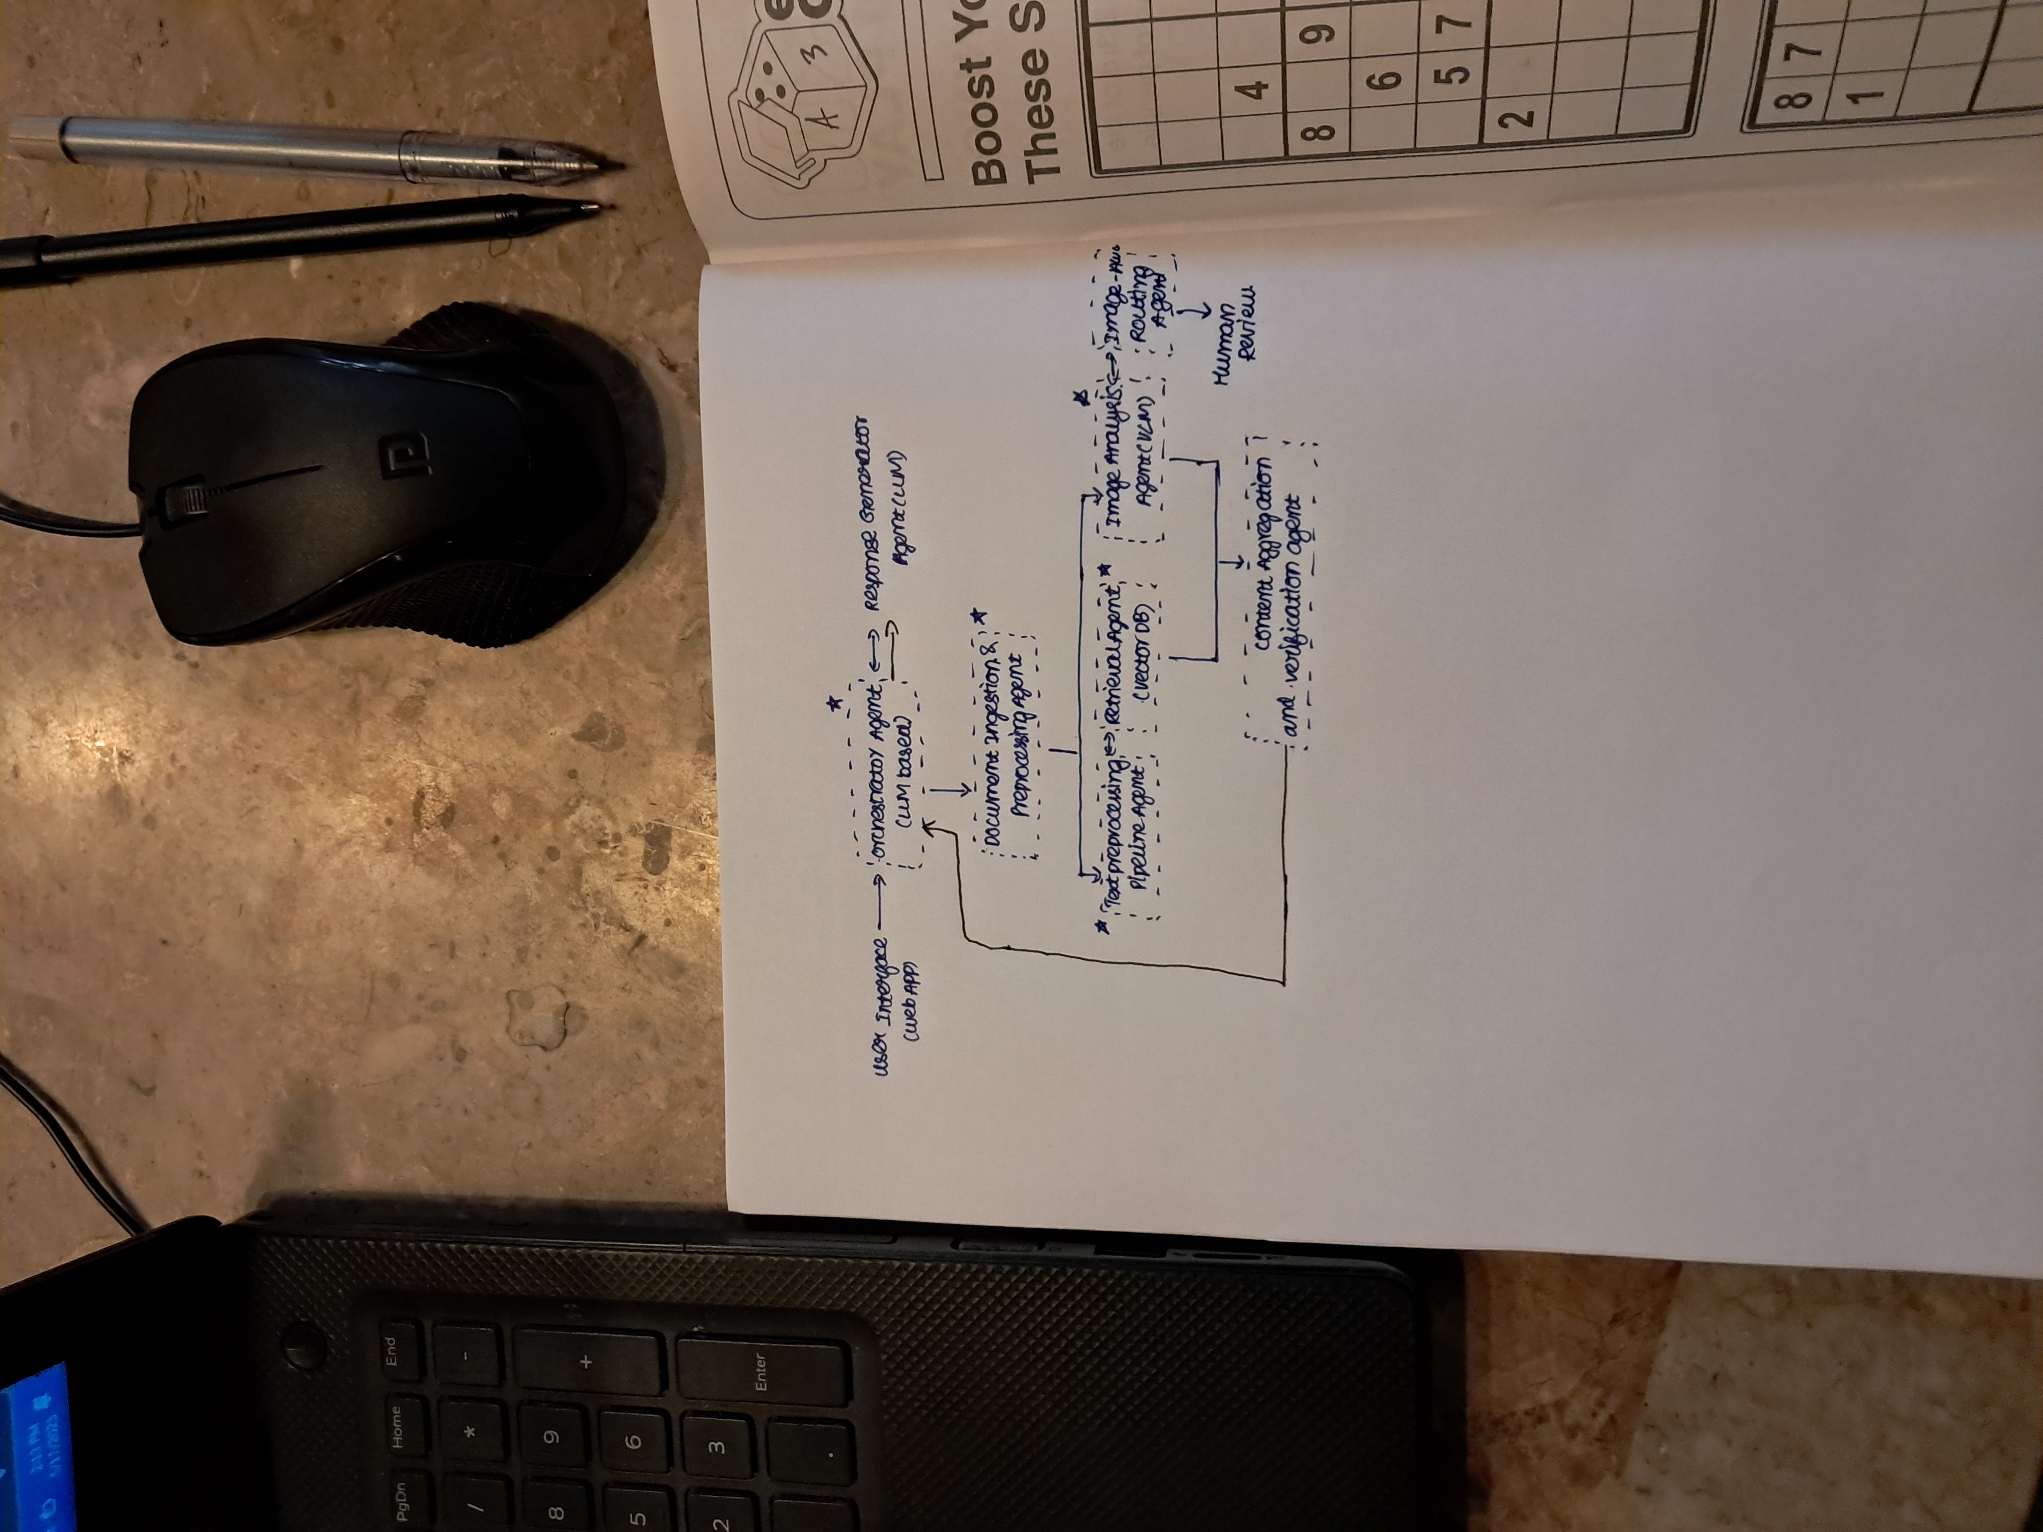 2:13 PM
5/17/2025
PgDn Home End
/ * -
8 9 +
5 6
2 3
Enter
.
User Interface
(Web App)
Orchestrator Agent
(LLM based)
Response Generator
Agent (LLM)
Document Ingestion &
Preprocessing Agent
Text preprocessing
Pipeline Agent
Retrieval Agent
(Vector DB)
Image Analysis
Agent (VLM)
Image-
Routing
Agent
Human
Review
Content Aggregation
and verification agent
A 3
e
Boost Yo
These S
4
8 9
6
5 7
2
8 7
1